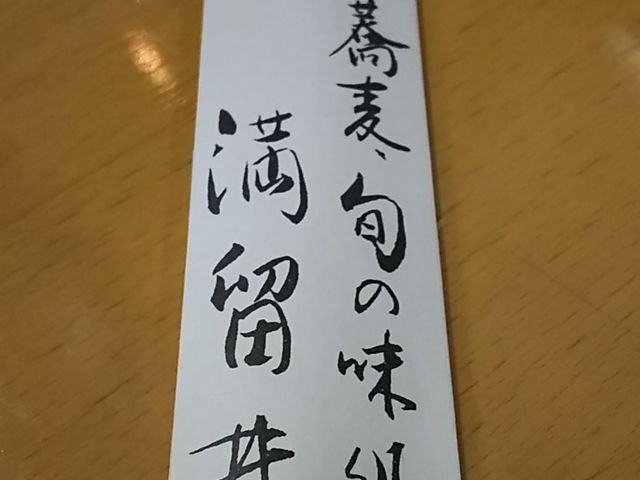 蕎麦、旬の味
満留井